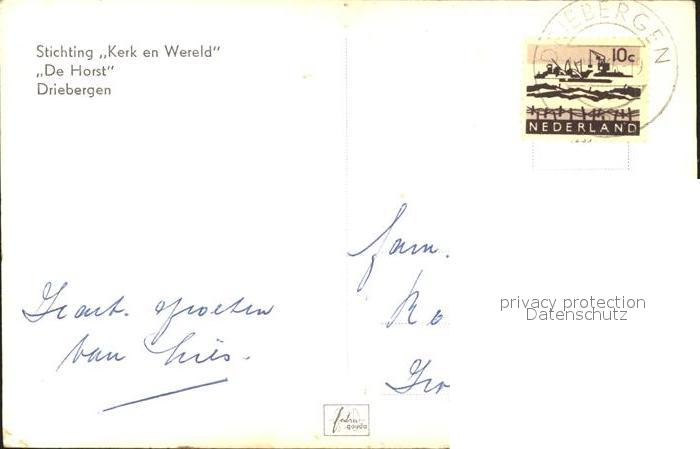 Stichting „Kerk en Wereld"
„De Horst"
Driebergen
DRIEBERGEN
10c
NEDERLAND
fam.
privacy protection
Datenschutz
Hart. groeten
van
gouda